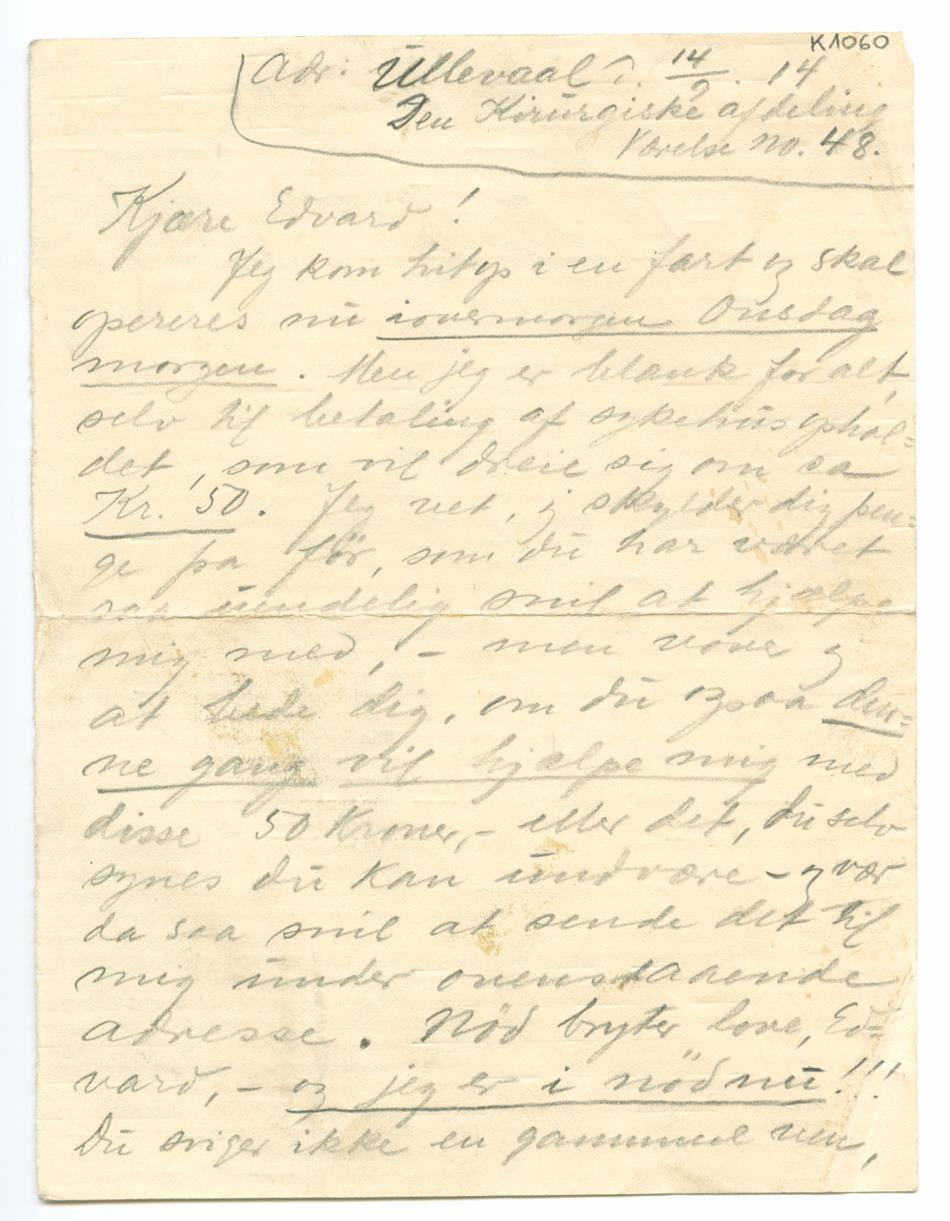 K1060
Adr: Ullevaal d. 14/9. 14
Den Kirurgiske afdeling
Værelse No. 48.
Kjære Edvard!
Jeg kom hitop i en fart og skal
opereres nu iovermorgen Onsdag
morgen. Men jeg er blank for alt,
selv til betaling af sykehusophol=
det, som vil dreie sig om ca
Kr. 50. Jeg vet, jeg skylder dig pen=
ge fra før, som du har været
saa uendelig snil at hjælpe
mig med, – men vover jeg
at bede dig, om du ogsaa den=
ne gang vil hjælpe mig med
disse 50 Kroner, – eller det, du selv
synes du kan undvære – og vær
da saa snil at sende det til
mig under ovenstaaende
adresse. Nöd bryter love, Ed=
vard, – og jeg er i nöd nu!!!
Du sviger ikke en gammel ven,